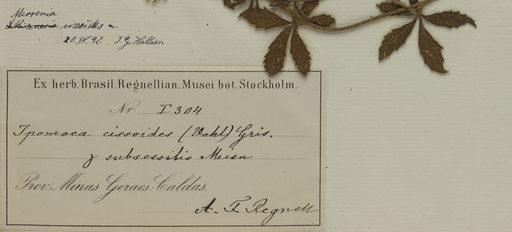 Merremia
cissoides
20.IV.92. J. G. Hallier
Ex herb. Brasil. Regnellian. Musei bot. Stockholm.
No I 304
Ipomoea cissoides (Vahl) Gris.
γ subsessilis Meisn
Prov. Minas Geraes: Caldas.
A. F. Regnell